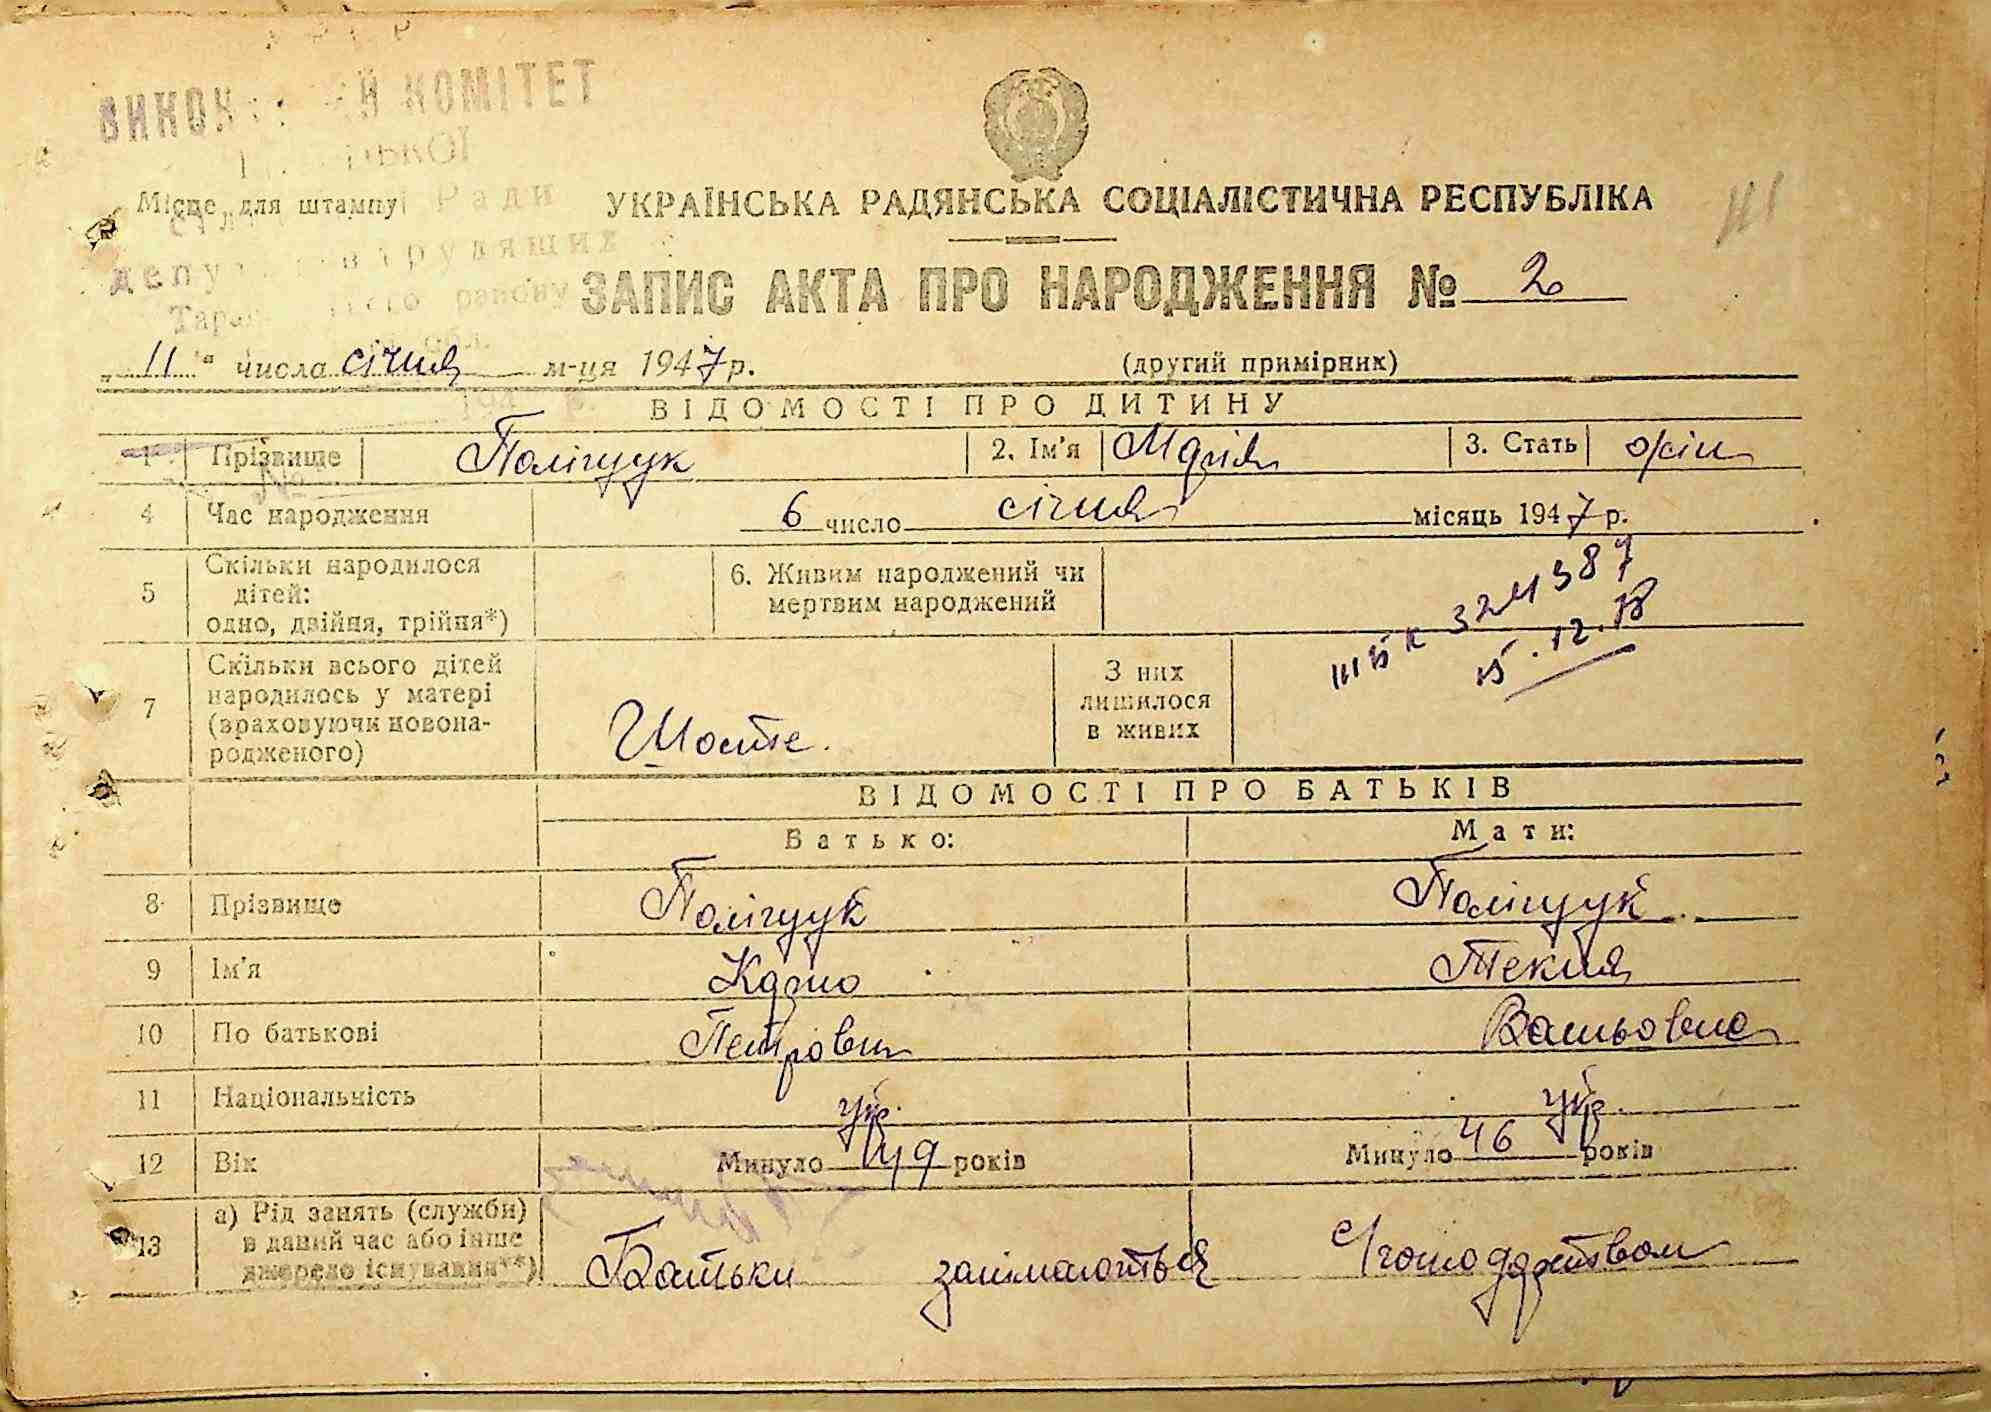 КОМІТЕТ
Ради
Місце для штампу
УКРАЇНСЬКА РАДЯНСЬКА СОЦІАЛІСТИЧНА РЕСПУБЛІКА
ЗАПИС АКТА ПРО НАРОДЖЕННЯ № 2
„11“ числа січня м-ця 1947 р.
(другий примірник)
ВІДОМОСТІ ПРО ДИТИНУ
1 Прізвище Поліщук 2. Ім'я Марія 3. Стать жін
4 Час народження 6 число січня місяць 1947 р.
5 Скільки народилося
дітей:
одно, двійня, трійня*)
6. Живим народжений чи
мертвим народжений
324387
15.12.78
7 Скільки всього дітей
народилось у матері
(враховуючи новона-
родженого)
Шосте.
З них
лишилося
в живих
ВІДОМОСТІ ПРО БАТЬКІВ
Батько: Мати:
8 Прізвище Поліщук Поліщук
9 Ім'я Карпо Текля
10 По батькові Петрович
11 Національність укр. укр.
12 Вік Минуло 49 років Минуло 46 років
13 а) Рід занять (служби)
в даний час або інше
джерело існування**)
Батьки занімаються с/господарством